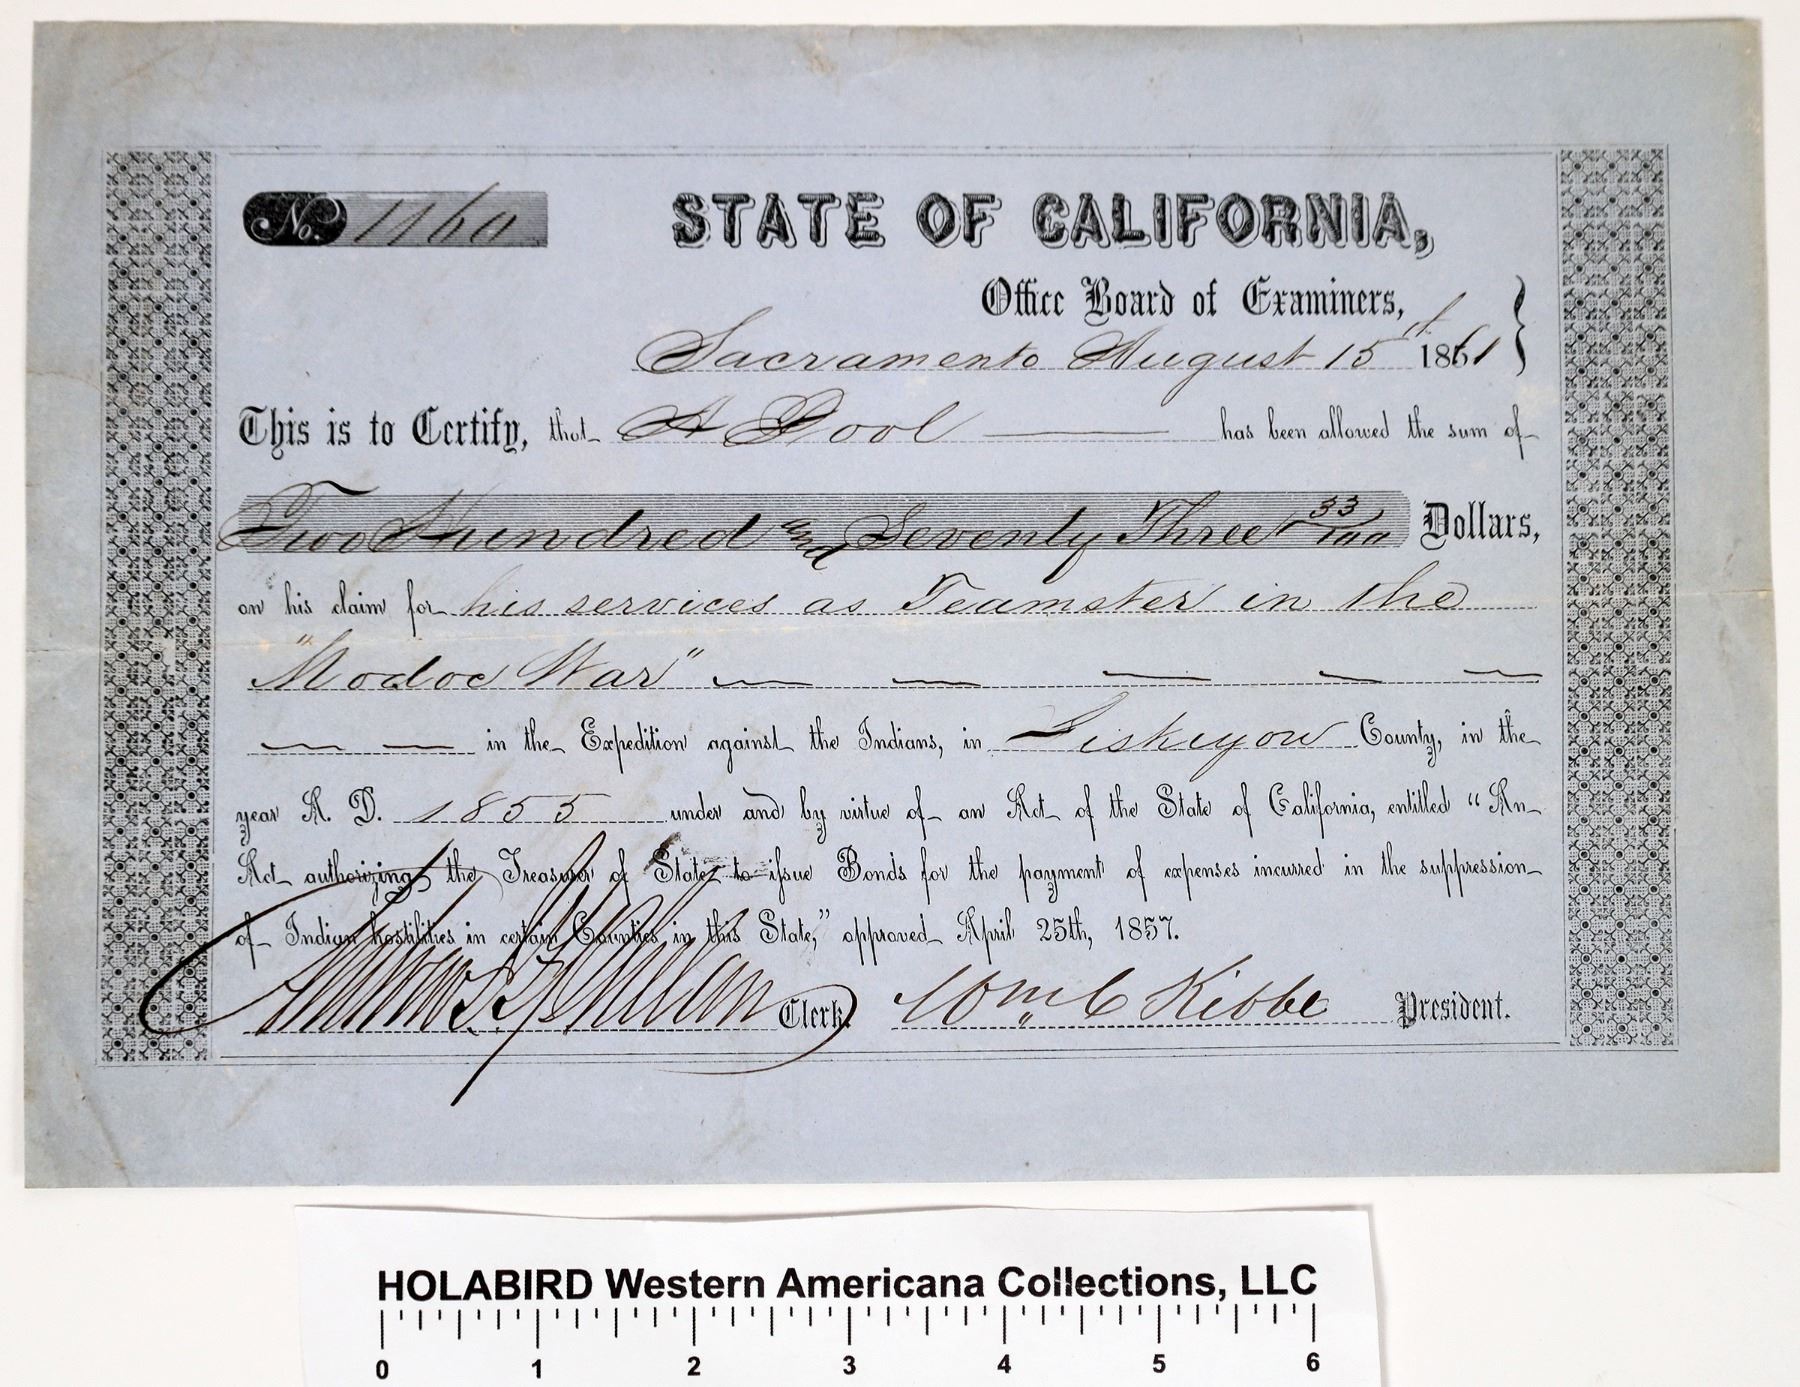 No. 1160
STATE OF CALIFORNIA,
Office Board of Examiners,
Sacramento August 15th 1861
This is to Certify, that A Pool has been allowed the sum of
Two Hundred and Seventy Three 33/100 Dollars,
on his claim for his services as Teamster in the
"Modoc War"
in the Expedition against the Indians, in Siskiyou County, in the
year A. D. 1855 under and by virtue of an Act of the State of California, entitled "An
Act authorizing the Treasurer of State to issue Bonds for the payment of expenses incurred in the suppression
of Indian hostilities in certain Counties in this State," approved April 25th, 1857.
Clerk. Wm C Kibbe President.
HOLABIRD Western Americana Collections, LLC
0 1 2 3 4 5 6